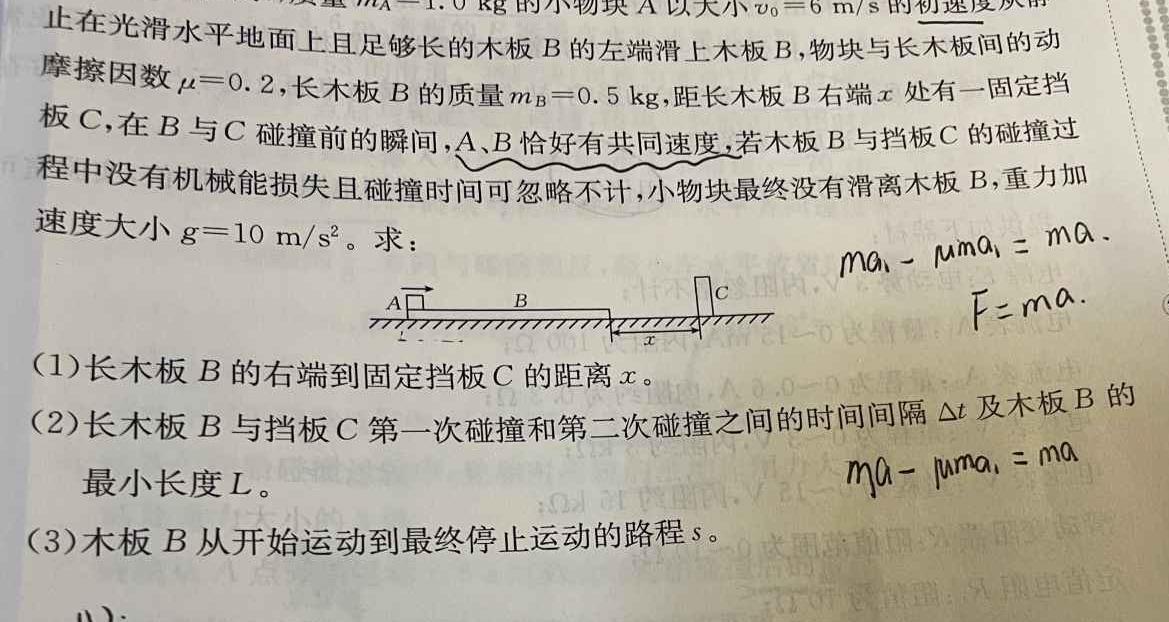 m_A=1.0 kg 的小物块 A 以大小 v₀=6 m/s 的初速度从
止在光滑水平地面上且足够长的木板 B 的左端滑上木板 B,物块与长木板间的动
摩擦因数 μ=0.2,长木板 B 的质量 m_B=0.5 kg,距长木板 B 右端 x 处有一固定挡
板 C,在 B 与 C 碰撞前的瞬间,A、B 恰好有共同速度,若木板 B 与挡板 C 的碰撞过
程中没有机械能损失且碰撞时间可忽略不计,小物块最终没有滑离木板 B,重力加
速度大小 g=10 m/s²。求:
ma₁ - μma₁ = ma.
F=ma.
A B C
x
(1)长木板 B 的右端到固定挡板 C 的距离 x。
(2)长木板 B 与挡板 C 第一次碰撞和第二次碰撞之间的时间间隔 Δt 及木板 B 的
最小长度 L。
ma - μma₁ = ma
(3)木板 B 从开始运动到最终停止运动的路程 s。